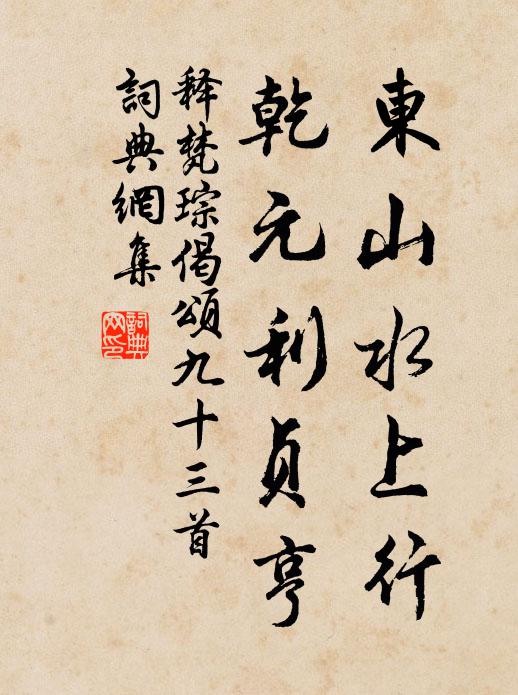 東山水上行
乾元利貞亨
释梵琮偈頌九十三首
詞典網集
詞典
网印